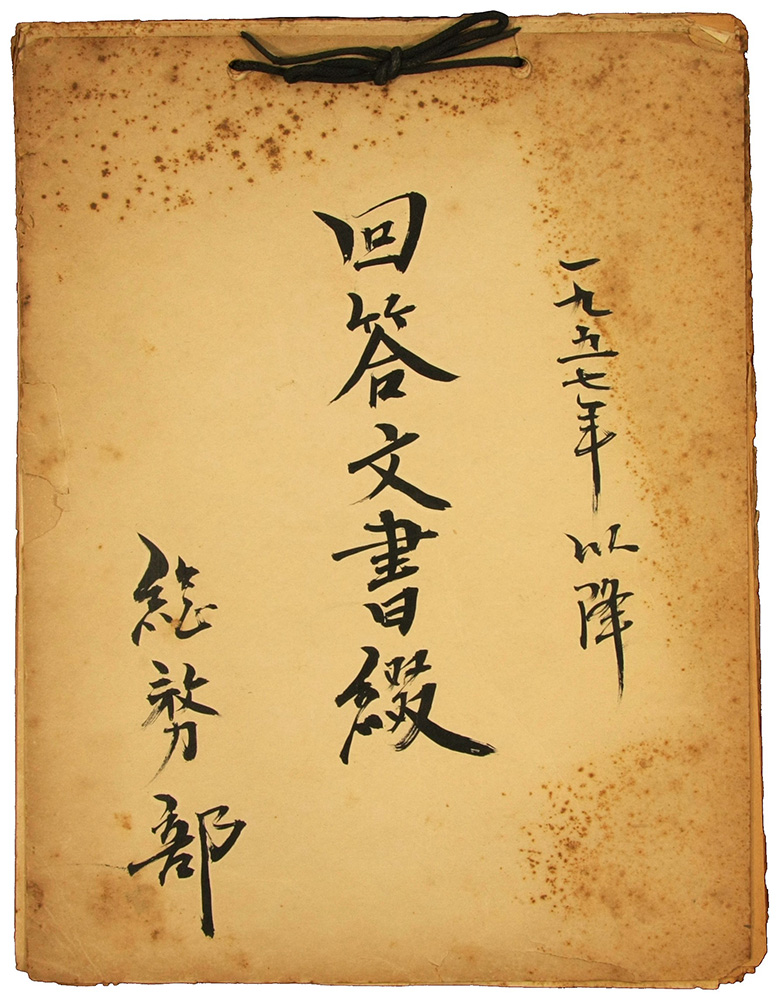 一九五七年以降
回答文書綴
総務部